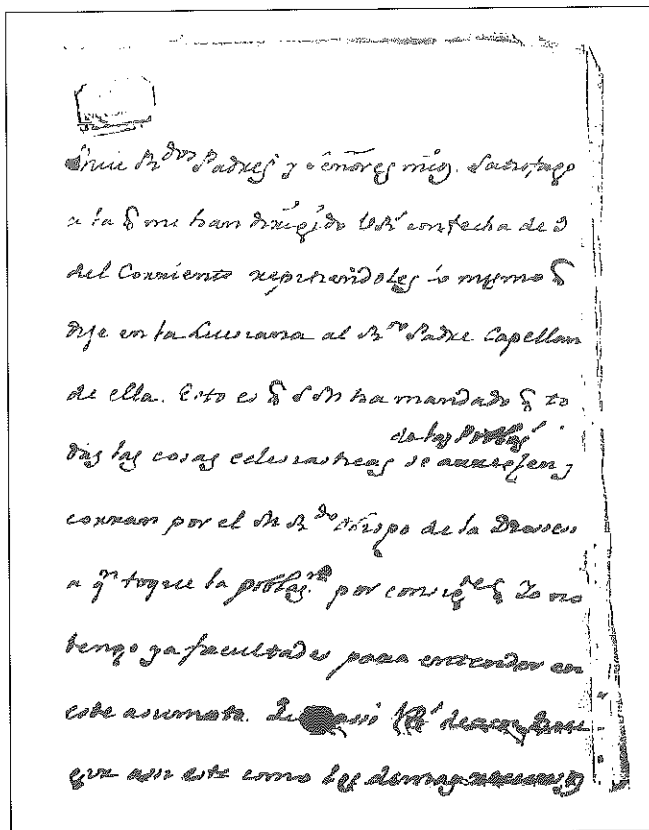 Rdos Padres y señores mios. Satisfago
a la q me han dirigido VRs con fecha de 9
del Corriente repitiendoles lo mismo q
dije en la Luisiana al Rdo Padre Capellan
de ella. Esto es q S M ha mandado q to
das las cosas eclesiasticas de las Poblas se arreglen y
corran por el M Rdo Obispo de la Dioces
a qn toque la poblasn por consigte q Yo no
tengo ya facultades para entender en
este asumpto.
que assi este como los demas